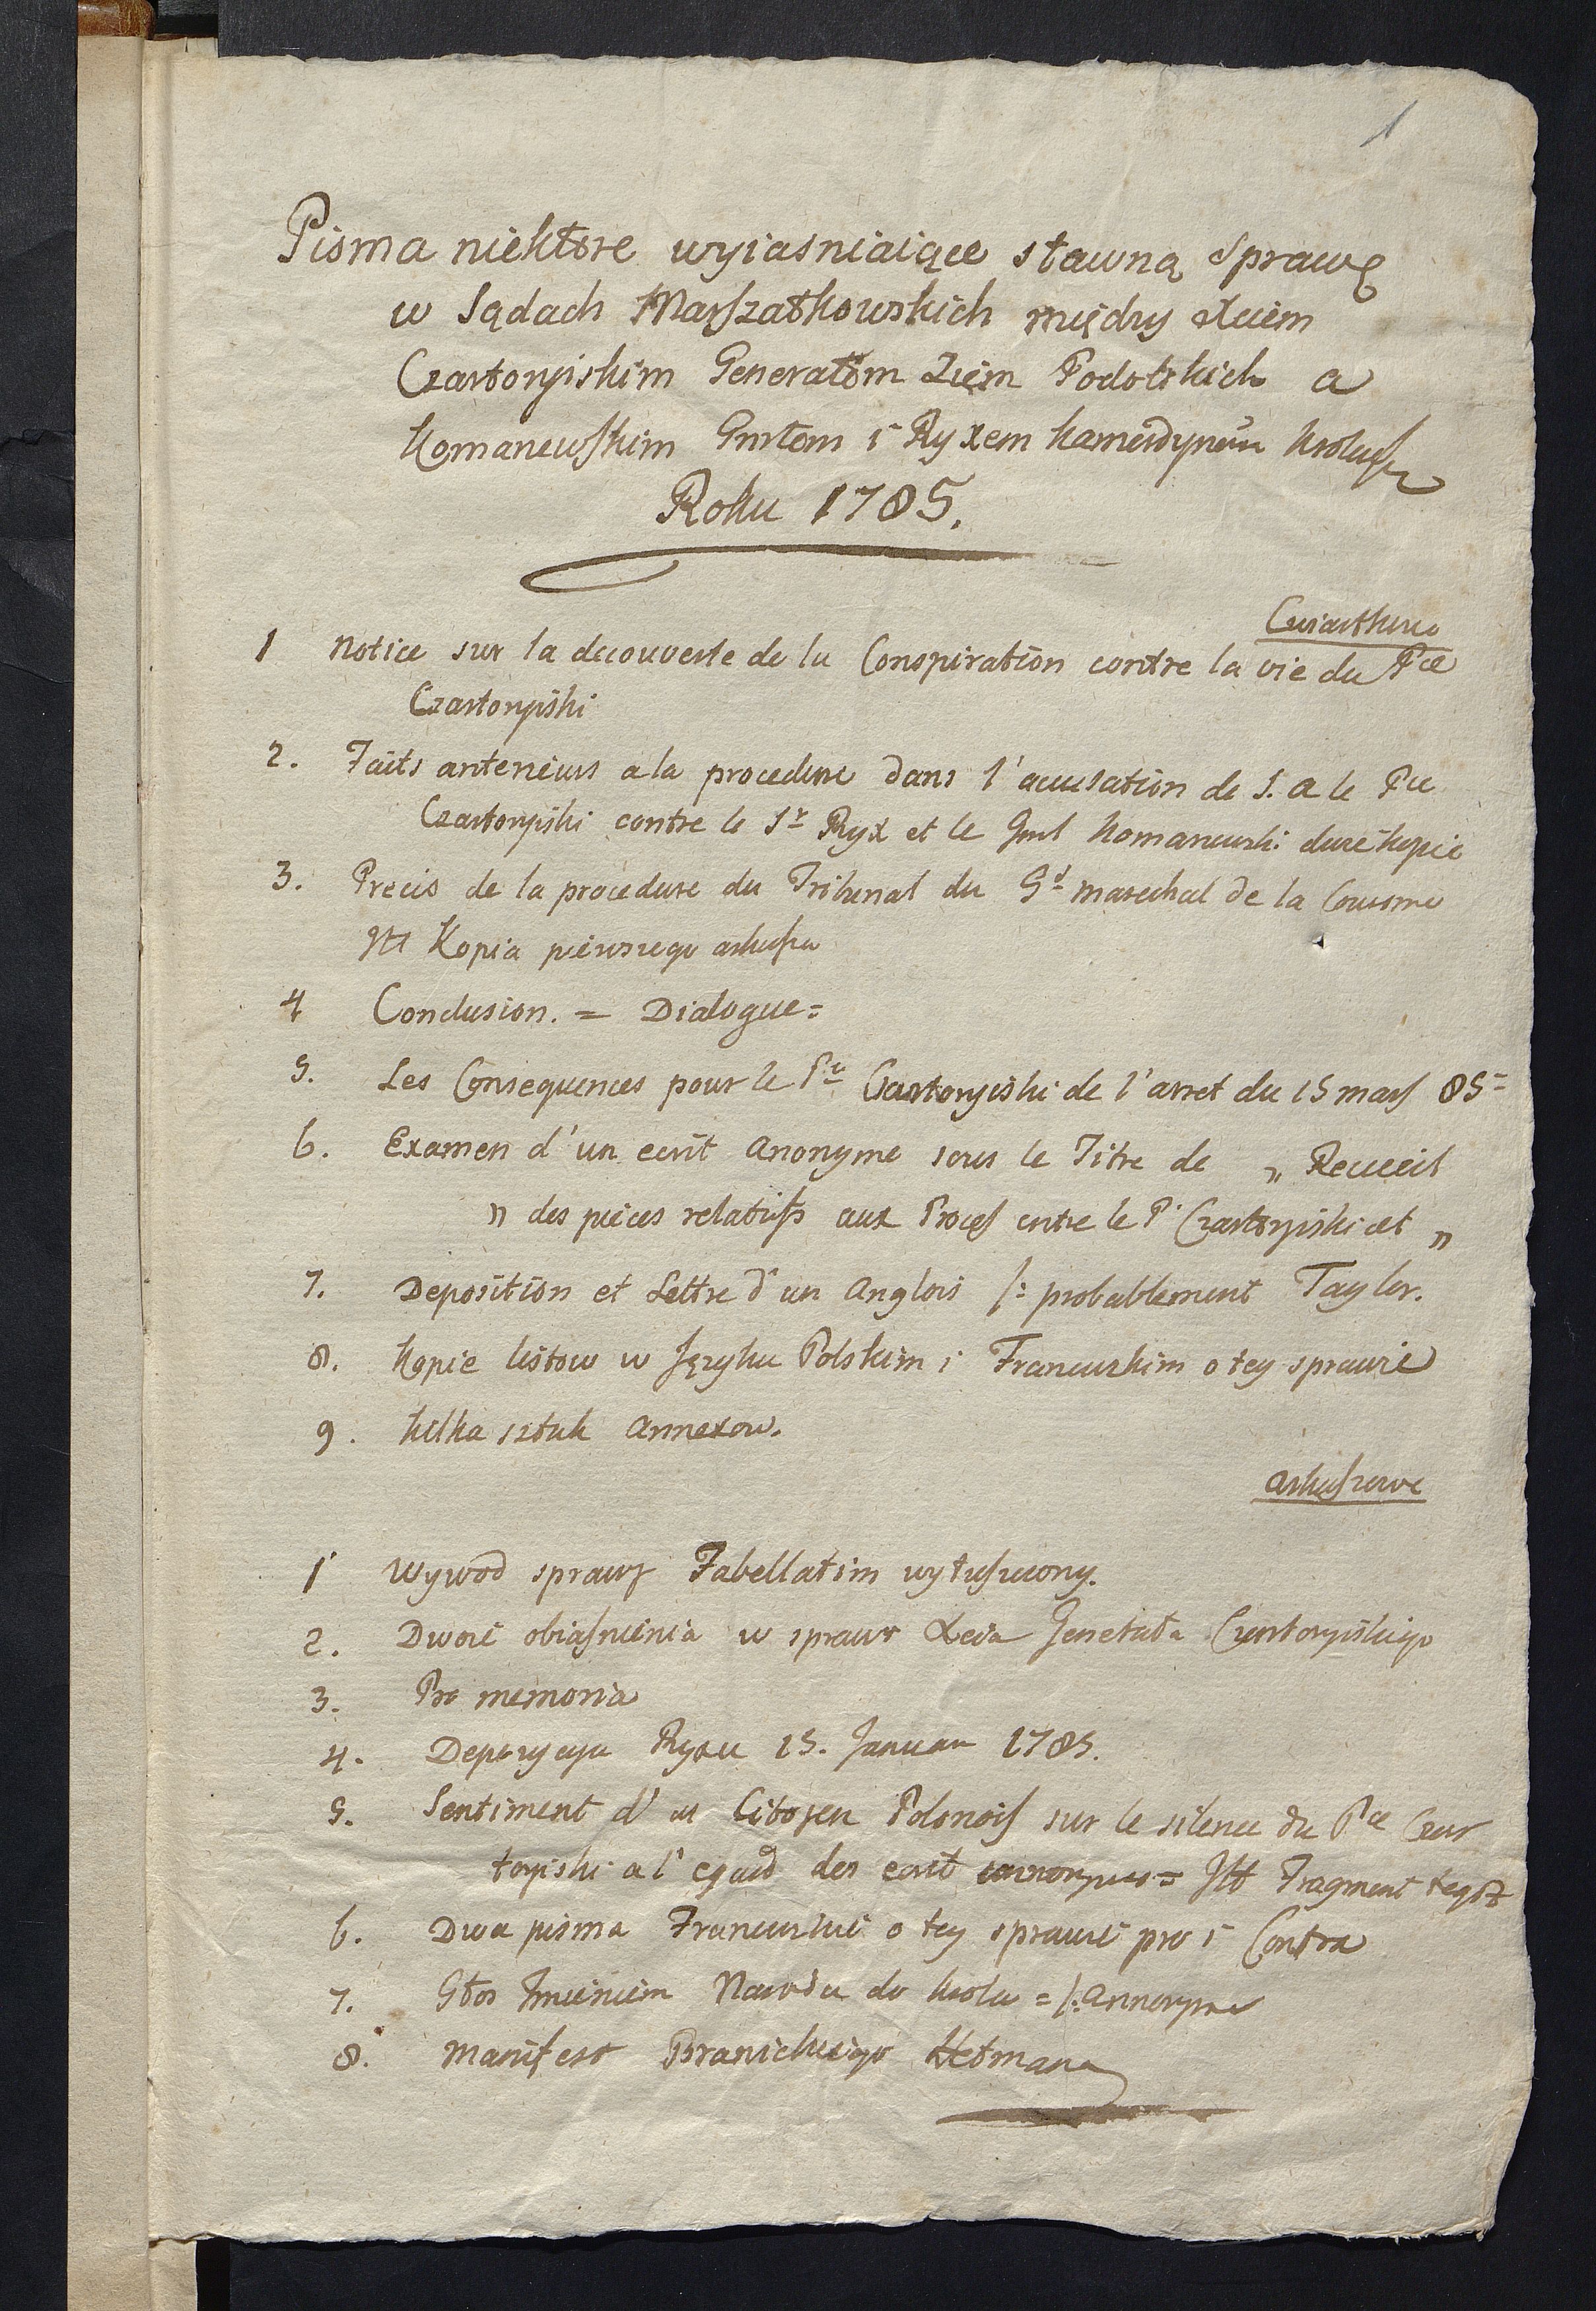 1
Pisma niektore wyiasniaiące sławną Sprawę
w Sądach Marszałkowskich między Xciem
Czartoryiskim Generałem Ziem Podolskich a
Komarzewskim Gnrłem i Ryxem Kamerdynerem Krolewskim
Roku 1785.
Cwiartkowe
1 Notice sur la decouverte de la Conspiration contre la vie du Pce
Czartoryiski
2. Faits anterieurs a la procedure dans l'accusation de S. A le Pce
Czartoryiski contre le Sr Ryx et le Gnrl Komarzewski dwie kopie
3. Precis de la procedure du Tribunal du Gd marechal de la Couronne
Itt Kopia pierwszego arkusza
4 Conclusion. = Dialogue =
5. Les Consequences pour le Pce Czartoryiski de l'arret du 15 mars 85 =
6. Examen d'un ecrit Anonyme sous le Titre de „ Recueil
„ des pieces relatifs aux Proces entre le P. Czartoryiski et „
7. Deposition et Lettre d'un Anglois /: probablement Taylor.
8. Kopie listow w Języku Polskim i Francuskim o tey sprawie
9. Kilka sztuk Annexow.
Arkuszowe
1 Wywod sprawy Tabellatim wytłuszczony.
2. Dwoie obiasnienia w sprawie Xcia Generała Czartoryiskiego
3. Pro memoria
4. Depozycya Ryxa 15. Januar 1785.
5. Sentiment d'un Citoyen Polonois sur le silence du Pce Czar
toryiski a l'egard des ecrit anonymes = Itt Fragment tegoż
6. Dwa pisma Francuskie o tey sprawie pro i Contra
7. Głos Imieniem Narodu do Krola = /: Annonyme
8. Manifest Branickiego Hetmana